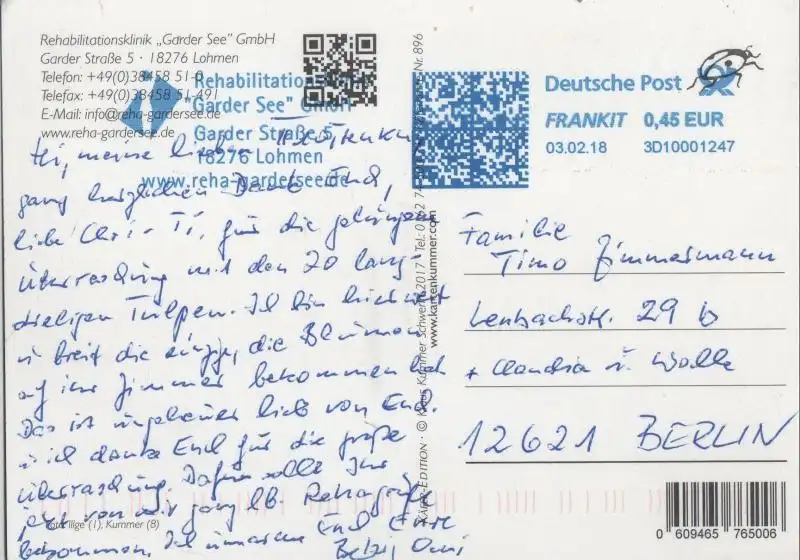 Rehabilitationsklinik „Garder See" GmbH
Garder Straße 5 · 18276 Lohmen
Telefon: +49(0)38458 51-0
Telefax: +49(0)38458 51-491
E-Mail: info@reha-gardersee.de
www.reha-gardersee.de
Rehabilitations
"Garder See" GmbH
Garder Straße 5
18276 Lohmen
www.reha-gardersee.de
Deutsche Post
FRANKIT 0,45 EUR
03.02.18 3D10001247
Hi, meine lieben
ganz herzlichen Dank Euch,
liebe Chri-Ti, für die gelungene
Überraschung mit den 20 lang-
stieligen Tulpen. Ich bin hier weit
u breit die einzige, die Blumen
auf ihr Zimmer bekommen hat
Das ist ungeheuer lieb von Euch.
u ich danke Euch für die große
Überraschung. Dafür sollt Ihr
jetzt von mir ganz lb.
bekommen. Ich umarme Euch Eure
Omi
Foto: Ilge (1), Kummer (8)
KAPKA-EDITION · © Klaus Kummer Schwerin 2017 · Tel.: Nr. 896
www.kartenkummer.com
Familie
Timo Zimmermann
Lenbachstr. 29 b
+ Claudia u.
12621 BERLIN
0 609465 765006